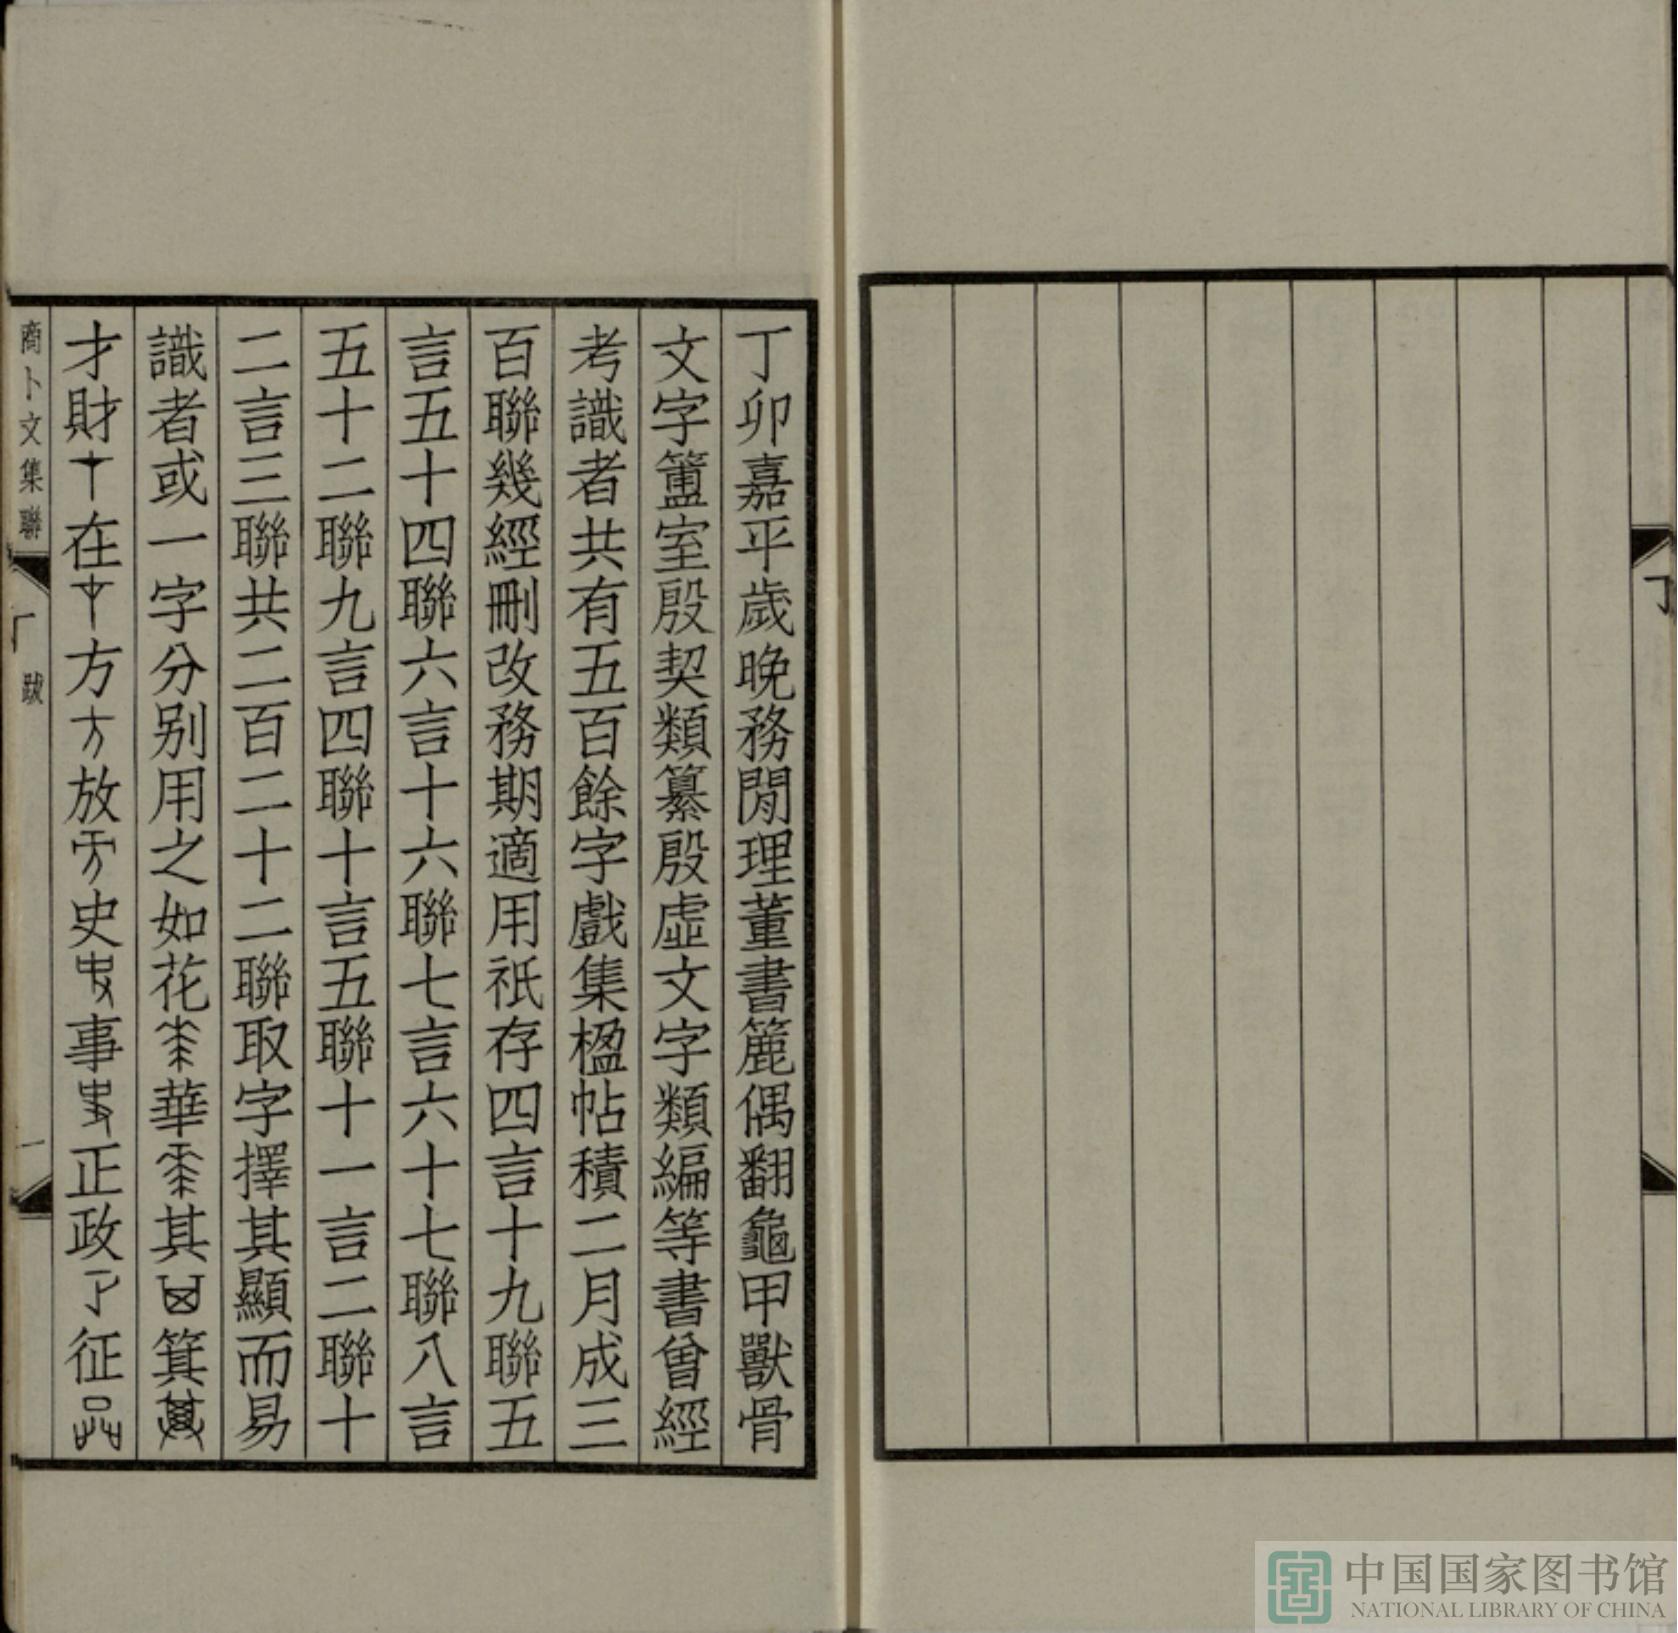 丁卯嘉平歲晚務閒理董書簏偶翻龜甲獸骨
文字簠室殷契類纂殷虛文字類編等書曾經
考識者共有五百餘字戲集楹帖積二月成三
百聯幾經刪改務期適用祇存四言十九聯五
言五十四聯六言十六聯七言六十七聯八言
五十二聯九言四聯十言五聯十一言二聯十
二言三聯共二百二十二聯取字擇其顯而易
識者或一字分别用之如花華其箕
才財在方放史事正政征
商卜文集聯
跋
一
中国国家图书馆
NATIONAL LIBRARY OF CHINA